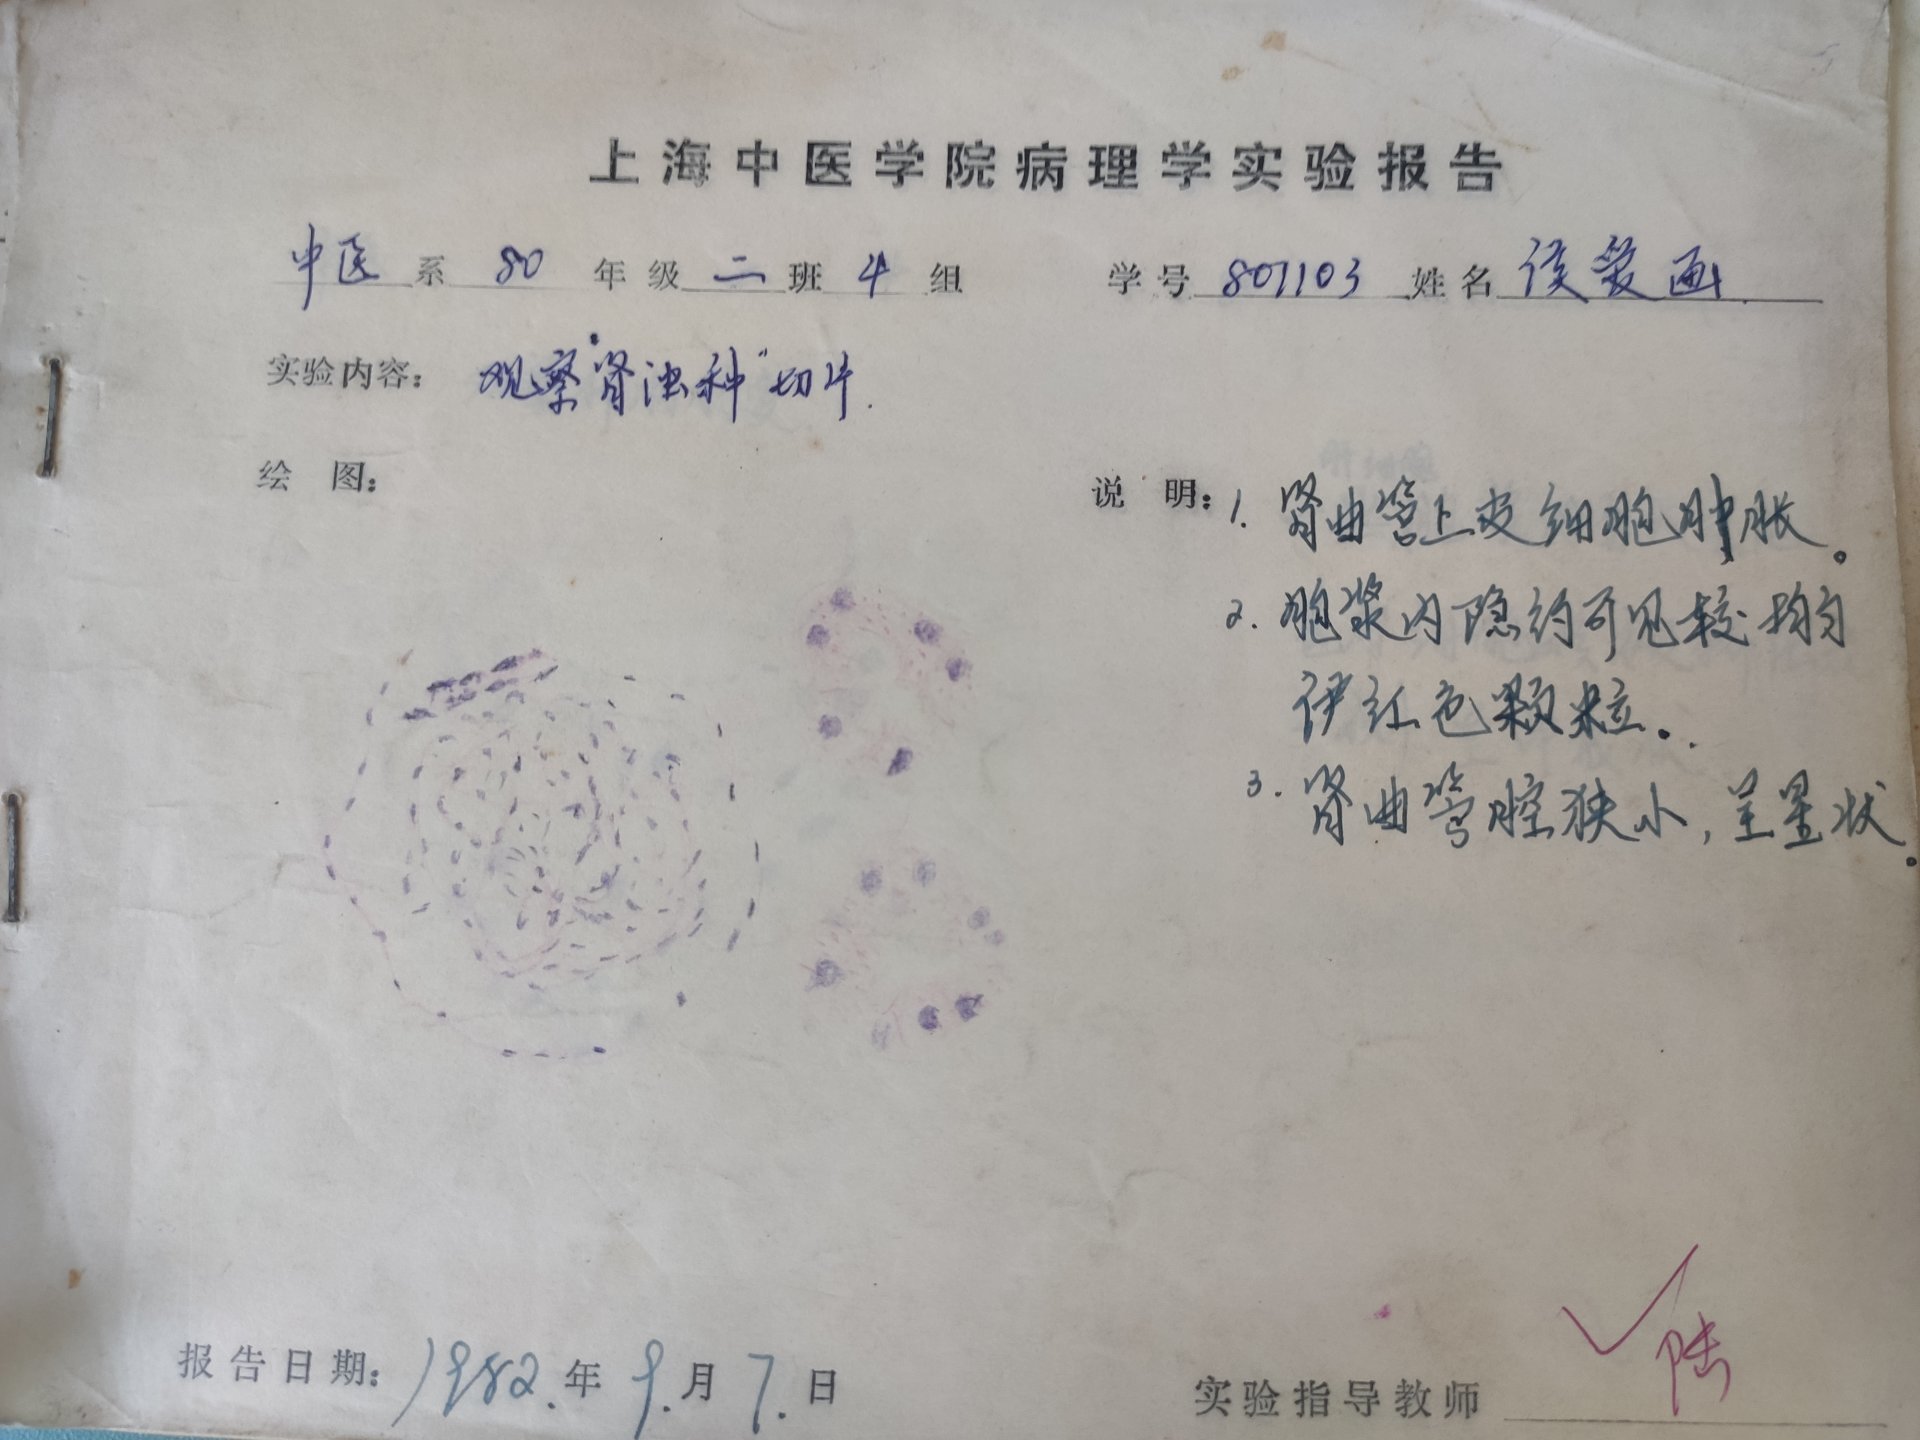 上海中医学院病理学实验报告
中医系 80 年级 二 班 4 组 学号 807103 姓名 侯爱画
实验内容: 观察"肾浊肿"切片.
绘 图:
说 明: 1. 肾曲管上皮细胞肿胀。
2. 胞浆内隐约可见较均匀
伊红色颗粒。
3. 肾曲管腔狭小，呈星状。
报告日期: 1982.年 9.月 7.日
实验指导教师 陆